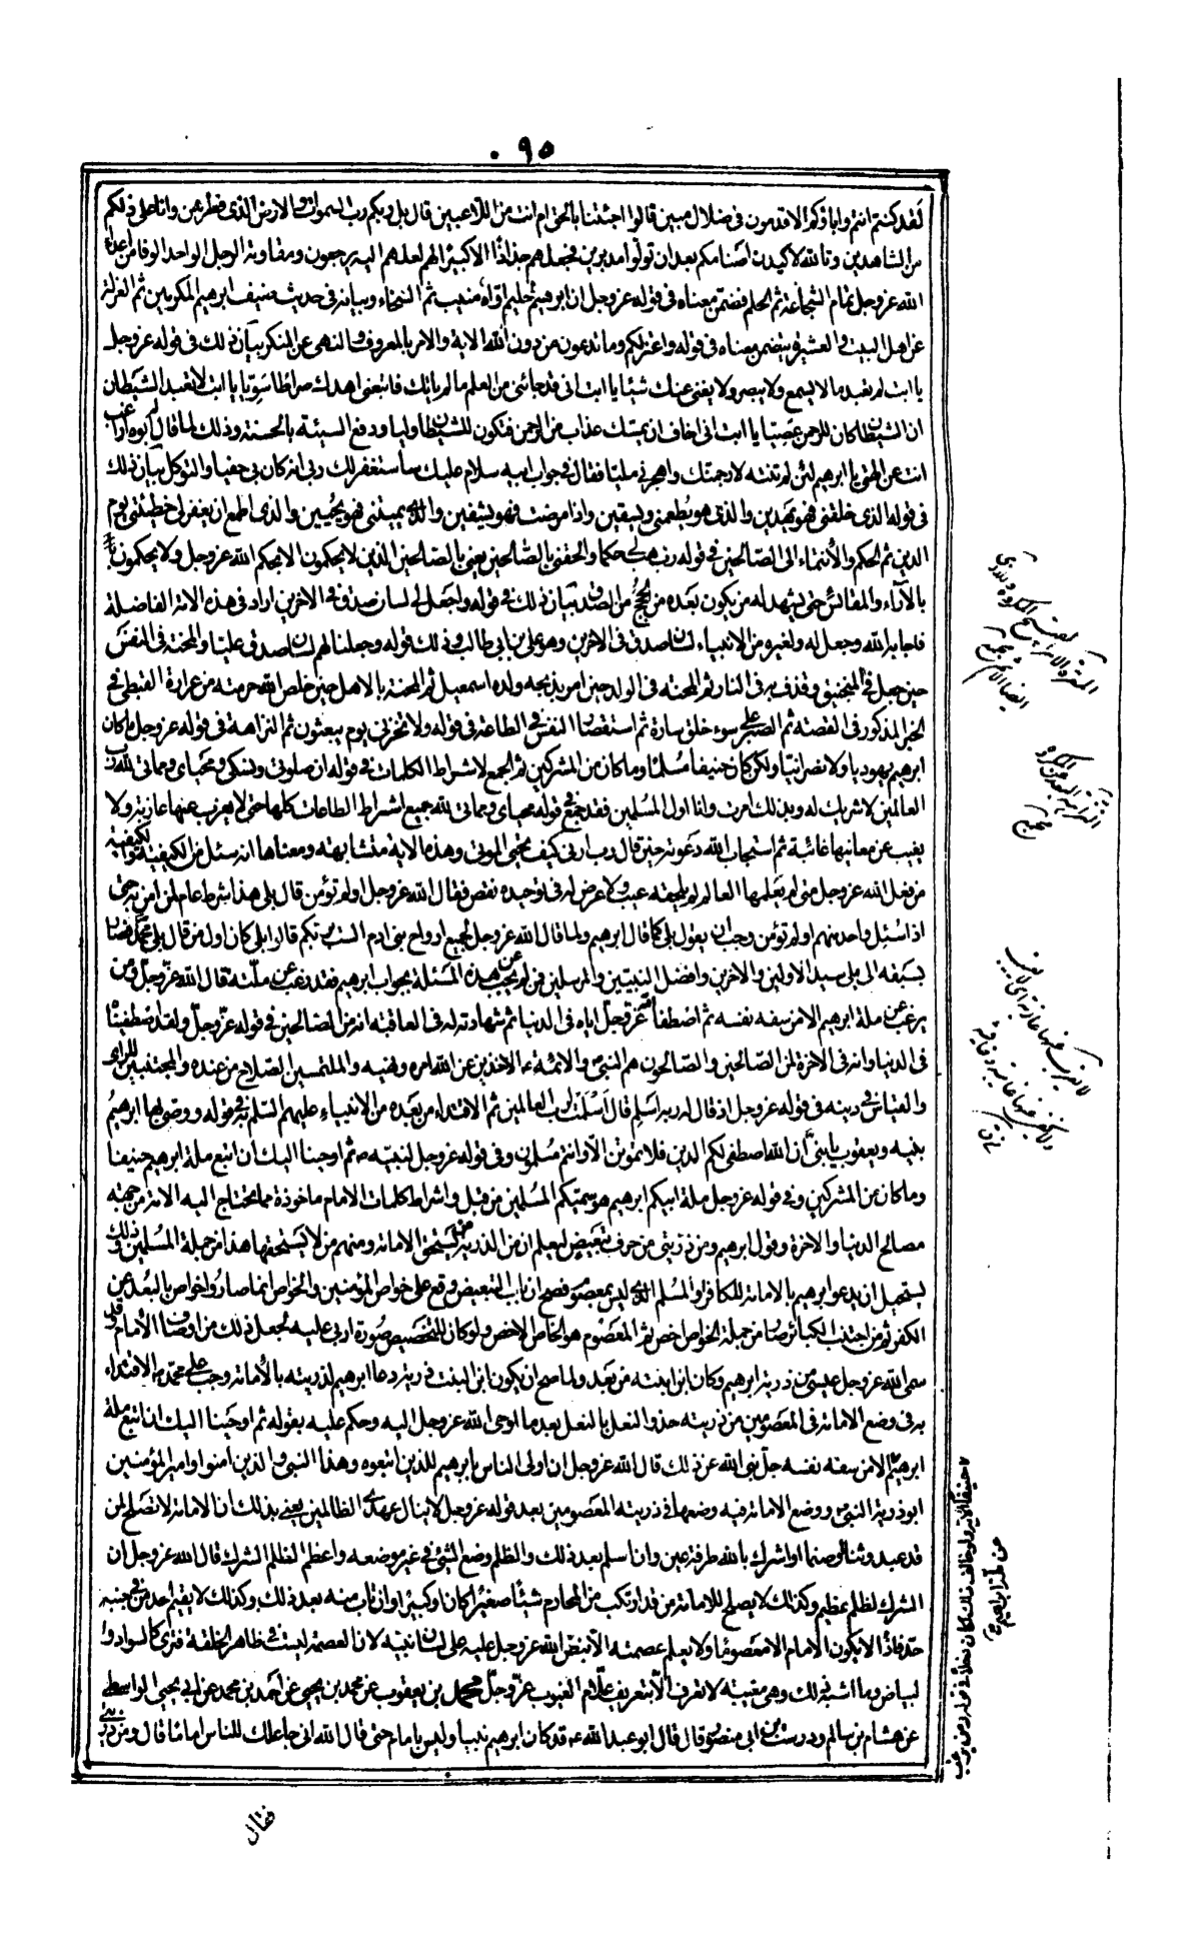 ٩٥
لقد كنتم انتم واباؤكم الاقدمون فى ضلال مبين قالوا اجئتنا بالحق ام انت من اللاعبين قال بل ربكم رب السموات والارض الذى فطرهن وانا على ذلكم
من الشاهدين وتالله لاكيدن اصنامكم بعد ان تولوا مدبرين فجعلهم جذاذًا الا كبيرًا لهم لعلهم اليه يرجعون ومقاومة الرجل الواحد الوفا من اعداء
الله عز وجل تمام الشجاعة ثم الحلم مضمن معناه فى قوله عز وجل ان ابرهيم لحليم اواه منيب ثم السخاء وبيانه فى حديث ضيف ابرهيم المكرمين ثم العزلة
عن اهل البيت والعشيرة بتضمن معناه فى قوله واعتزلكم وما تدعون من دون الله الاية والامر بالمعروف والنهى عن المنكر بيان ذلك فى قوله عز وجل
يا ابت لم تعبد ما لا يسمع ولا يبصر ولا يغنى عنك شيئا يا ابت انى قد جائنى من العلم ما لم ياتك فاتبعنى اهدك صراطًا سويًا يا ابت لا تعبد الشيطان
ان الشيطان كان للرحمن عصيا يا ابت انى اخاف ان يمسك عذاب من الرحمن فتكون للشيطان وليا ودفع السيئة بالحسنة وذلك لما قال ابوه اراغب
انت عن الهتى يا ابرهيم لئن لم تنته لارجمنك واهجرنى مليا فقال فى جواب ابيه سلام عليك ساستغفر لك ربى انه كان بى حفيا والتوكل بيان ذلك
فى قوله الذى خلقنى فهو يهدين والذى هو يطعمنى ويسقين واذا مرضت فهو يشفين والذى يميتنى ثم يحيين والذى اطمع ان يغفر لى خطيئتى يوم
الدين ثم الحكم والانتماء الى الصالحين فى قوله رب هب لى حكما والحقنى بالصالحين يعنى بالصالحين الذين لا يحكمون الا بحكم الله عز وجل ولا يحكمون
بالآراء والمقائس حتى يشهد له من يكون بعده من الحجج بالصدق بيان ذلك فى قوله واجعل لى لسان صدق فى الاخرين اراد فى هذه الامة الفاضلة
فاجابه الله وجعل له ولغيره من الانبياء لسان صدق فى الاخرين وهو على بن ابى طالب وذلك قوله وجعلنا لهم لسان صدق عليا والمحنة فى النفس
حين جعل فى المنجنيق وقذف به فى النار ثم المحنة فى الولد حين امر بذبح ولده اسمعيل ثم المحنة بالاهل حين خلص الله حرمته من عرارة القبطى فى
الخبر المذكور فى القصة ثم الصبر على سوء خلق سارة ثم استقصار النفس فى الطاعة فى قوله ولا تخزنى يوم يبعثون ثم النزاهة فى قوله عز وجل ما كان
ابرهيم يهوديا ولا نصرانيا ولكن كان حنيفا مسلما وما كان من المشركين ثم الجمع لاشراط الكلمات فى قوله ان صلوتى ونسكى ومحياى ومماتى لله رب
العالمين لا شريك له وبذلك امرت وانا اول المسلمين فقد جمع فى قوله محياى ومماتى لله جميع اشراط الطاعات كلها حتى لا يعزب عنها عازبة ولا
يغيب عن معانيها غائبة ثم استجاب الله دعوته حين قال رب ارنى كيف تحيى الموتى وهذه الاية متشابهة ومعناها انه سئل عن الكيفية والكيفية
من فعل الله عز وجل متى لم يعلمها العالم لم يلحقه عيب ولا عرض له فى توحيده نقص فقال الله عز وجل اولم تؤمن قال بلى هذا شرط عام لمن امن به متى
اذا سئل واحد منهم اولم تؤمن وجب ان يقول بلى كما قال ابرهيم ولما قال الله عز وجل لجميع ارواح بنى ادم الست بربكم قالوا بلى كان اول من قال بلى محمد فصار
بسبقه الى بلى سيد الاولين والاخرين وافضل النبيين والمرسلين فمن لم يجب عن هذه المسئلة بجواب ابرهيم فقد رغب عن ملته قال الله عز وجل ومن
يرغب عن ملة ابرهيم الا من سفه نفسه ثم اصطفاء الله عز وجل اياه فى الدنيا ثم شهادته له فى العاقبة انه من الصالحين فى قوله عز وجل ولقد اصطفيناه
فى الدنيا وانه فى الاخرة لمن الصالحين والصالحون هم النبى والائمة الاخذين عن الله امره ونهيه والملتمسين الصلاح من عنده والمجتنبين للراى
والقياس فى دينه فى قوله عز وجل اذ قال له ربه اسلم قال اسلمت لرب العالمين ثم الاقتداء من بعده من الانبياء عليهم السلم به فى قوله ووصى بها ابرهيم
بنيه ويعقوب يا بنى ان الله اصطفى لكم الدين فلا تموتن الا وانتم مسلمون وفى قوله عز وجل لنبيه ص ثم اوحينا اليك ان اتبع ملة ابرهيم حنيفا
وما كان من المشركين وفى قوله عز وجل ملة ابيكم ابرهيم هو سميكم المسلمين من قبل واشراط كلمات الامام ماخوذة مما يحتاج اليه الامة من جهة
مصالح الدنيا والاخرة وقول ابرهيم ومن ذريتى من حرف تبعيض ليعلم ان من الذرية من يستحق الامامة ومنهم من لا يستحقها هذا من جملة المسلمين وذلك
يستحيل ان يدعو ابرهيم بالامامة للكافر او المسلم الذى ليس بمعصوم فصح ان باب التبعيض وقع على خواص المؤمنين والخواص انما صاروا خواص بالبعد عن
الكفر ثم من اجتنب الكبائر صار من جملة الخواص اخص ثم المعصوم هو الخاص الاخص ولو كان للتخصيص صورة اربى عليه لجعل ذلك من اوصاف الامام وقد
سمى الله عز وجل عيسى من ذرية ابرهيم وكان ابن ابنته من بعده ولما صح ان يكون ابن البنت ذرية ودعا ابرهيم لذريته بالامامة وجب على محمد ص الاقتداء
به فى وضع الامامة فى المعصومين من ذريته حذو النعل بالنعل بعد ما اوحى الله عز وجل اليه وحكم عليه بقوله ثم اوحينا اليك ان اتبع ملة
ابرهيم الا من سفه نفسه جل نبى الله عن ذلك قال الله عز وجل ان اولى الناس بابرهيم للذين اتبعوه وهذا النبى والذين امنوا وامير المؤمنين
ابو ذرية النبى ص ووضع الامامة فيه وضعها فى ذريته المعصومين بعد قوله عز وجل لا ينال عهدى الظالمين يعنى بذلك ان الامامة لا تصلح لمن
قد عبد وثنا او صنما او اشرك بالله طرفة عين وان اسلم بعد ذلك والظلم وضع الشئ فى غير موضعه واعظم الظلم الشرك قال الله عز وجل ان
الشرك لظلم عظيم وكذلك لا يصلح للامامة من قد ارتكب من المحارم شيئًا صغيرًا كان او كبيرًا وان تاب منه بعد ذلك وكذلك لا يقيم احد من فى جنبه
حد فاذًا لا يكون الامام الا معصومًا ولا يعلم عصمته الا بنص الله عز وجل عليه على لسان نبيه لان العصمة ليست فى ظاهر الخلقة فترى كالسواد وا
لبياض وما اشبه ذلك وهى مغيبة لا تعرف الا بتعريف علام الغيوب عز وجل محمد بن يعقوب عن محمد بن يحيى عن احمد بن محمد عن ابى يحيى الواسطى
عن هشام بن سالم ودرست بن ابى منصور قال قال ابو عبد الله ع قد كان ابرهيم نبيا وليس بامام حتى قال الله انى جاعلك للناس اماما قال ومن ذريتى
فقال
حنيفًا الاية ولو خالف ذلك لكان داخلًا فى قوله ومن يرغب
عن ملة ابراهيم